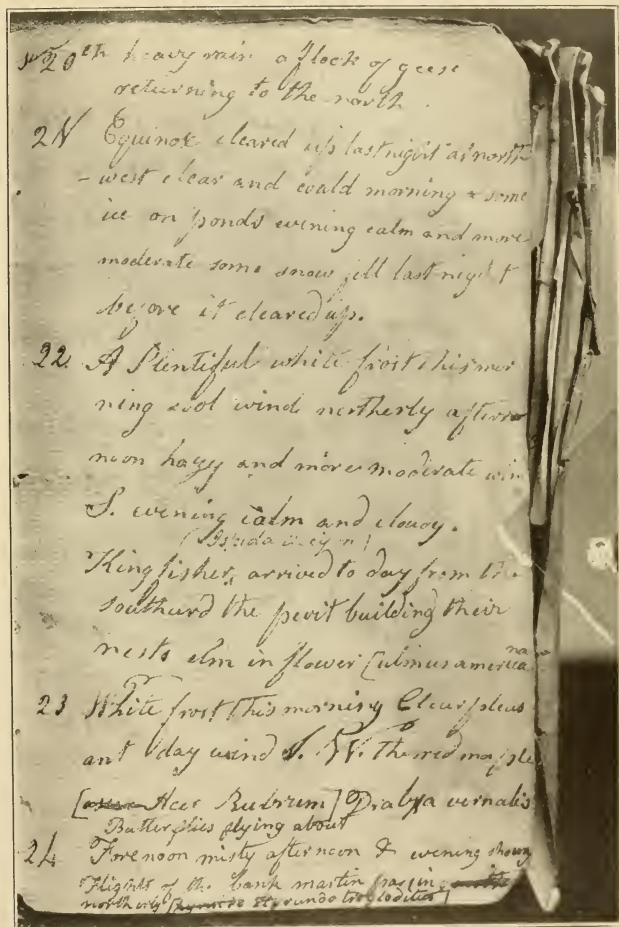 20th heavy rain a flock of geese
returning to the north.
21 Equinox cleared up last night at north
-west clear and could morning & some
ice on ponds evening calm and more
moderate some snow fell last night
before it cleared up.
22 A Plentiful white frost this mor
ning cool wind northerly after
noon hazy and more moderate win
S. evening calm and cloudy.
Kingfisher, arrived to day from the
southerd the pevit building their
nests elm in flower [ulmus america
na
23 White frost this morning Clear pleas
ant day wind S. W. The red maple
[Acer Rubrum] Draba vernalis
Butterflies flying about
24 Forenoon misty afternoon & evening showy
Flights of the bank martin passing
northerly